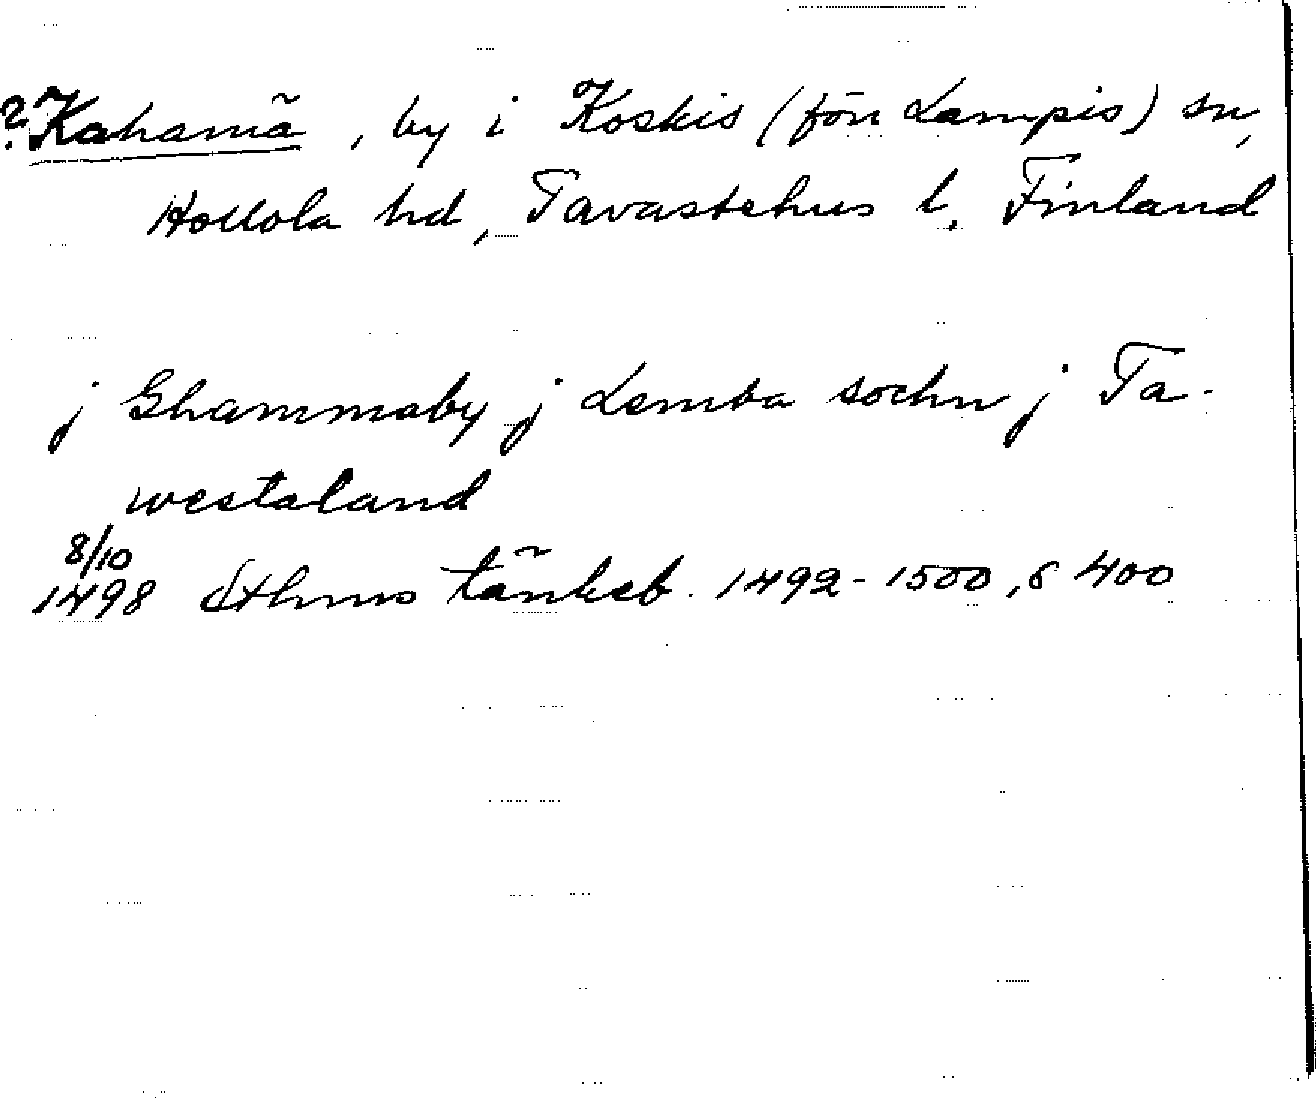 ? Kahamä, by i Koskis (förr Lampis) sn,
Hollola hd, Tavastehus l. Finland
j Ghammaby j Lemba sochn j Ta-
westaland
8/10
1498 Sthms tänkeb. 1492-1500, s 400